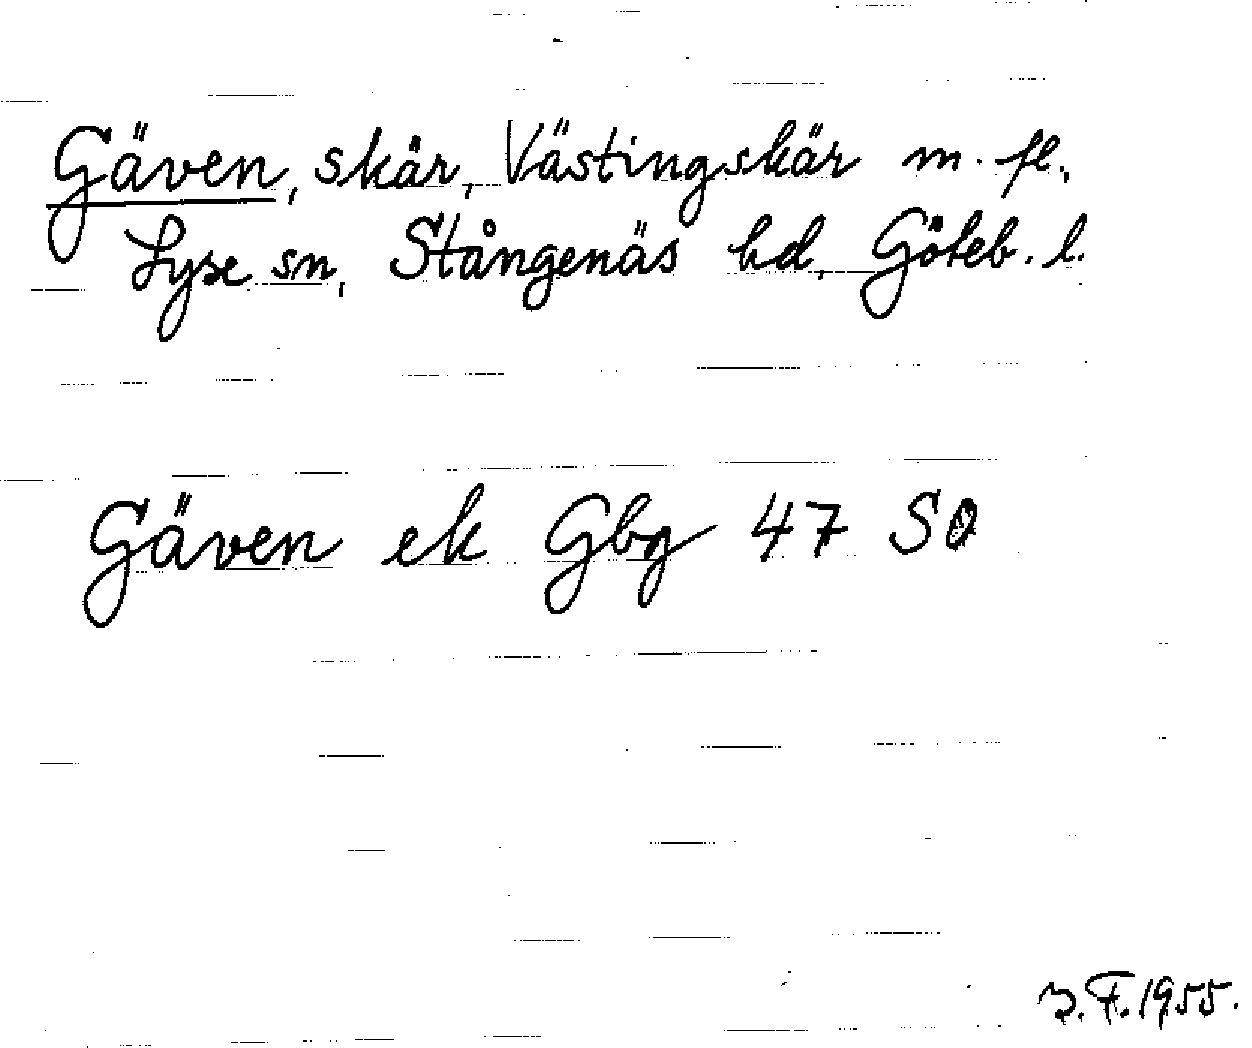 Gäven, skär, Västingskär m. fl.
Lyse sn, Stångenäs hd, Göteb. l.
Gäven ek Gbg 47 SO
F. 1955.